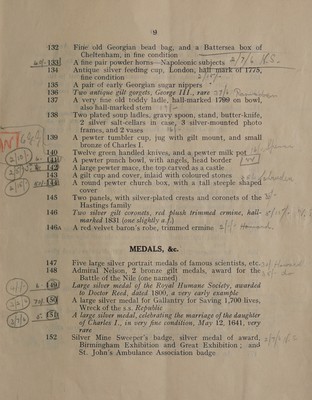 9
132 Fine old Georgian bead bag, and a Battersea box of
Cheltenham, in fine condition
133 A fine pair powder horns—Napoleonic subjects
134 Antique silver feeding cup, London, hall mark of 1775,
fine condition
135 A pair of early Georgian sugar nippers
136 Two antique gilt gorgets, George III., rare
137 A very fine old toddy ladle, hall-marked 1799 on bowl,
also hall-marked stem
138 Two plated soup ladles, gravy spoon, stand, butter-knife,
2 silver salt-cellars in case, 3 silver-mounted photo
frames, and 2 vases
139 A pewter tumbler cup, jug with gilt mount, and small
bronze of Charles I.
140 Twelve green handled knives, and a pewter milk pot
141 A pewter punch bowl, with angels, head border
142 A large pewter mace, the top carved as a castle
143 A gilt cup and cover, inlaid with coloured stones
144 A round pewter church box, with a tall steeple shaped
cover
145 Two panels, with silver-plated crests and coronets of the
Hastings family
146 Two silver gilt coronets, red plush trimmed ermine, hall-
marked 1831 (one slightly a.f.)
146A A red velvet baron's robe, trimmed ermine
MEDALS, &c.
147 Five large silver portrait medals of famous scientists, etc.
148 Admiral Nelson, 2 bronze gilt medals, award for the
Battle of the Nile (one named)
149 Large silver medal of the Royal Humane Society, awarded
to Doctor Reed, dated 1800, a very early example
150 A large silver medal for Gallantry for Saving 1,700 lives,
Wreck of the s.s. Republic
151 A large silver medal, celebrating the marriage of the daughter
of Charles I., in very fine condition, May 12, 1641, very
rare
152 Silver Mine Sweeper's badge, silver medal of award,
Birmingham Exhibition and Great Exhibition; and
St. John's Ambulance Association badge